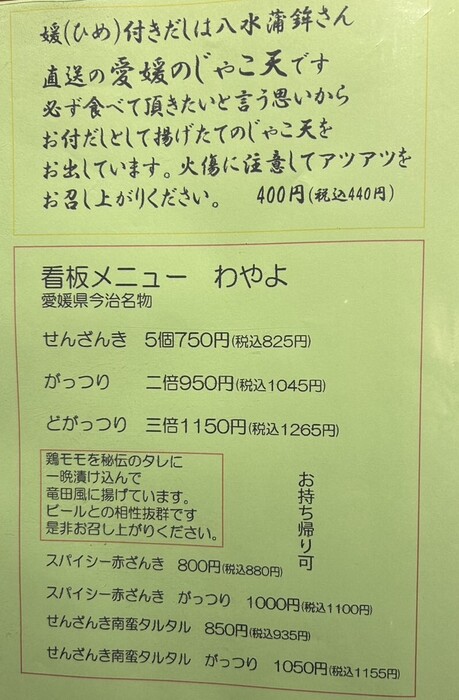 媛(ひめ)付きだしは八水蒲鉾さん
直送の愛媛のじゃこ天です
必ず食べて頂きたいと言う思いから
お付だしとして揚げたてのじゃこ天を
お出しています。火傷に注意してアツアツを
お召し上がりください。 400円(税込440円)
看板メニュー わやよ
愛媛県今治名物
せんざんき 5個750円(税込825円)
がっつり 二倍950円(税込1045円)
どがっつり 三倍1150円(税込1265円)
鶏モモを秘伝のタレに
一晩漬け込んで
竜田風に揚げています。
ビールとの相性抜群です
是非お召し上がりください。
お持ち帰り可
スパイシー赤ざんき 800円(税込880円)
スパイシー赤ざんき がっつり 1000円(税込1100円)
せんざんき南蛮タルタル 850円(税込935円)
せんざんき南蛮タルタル がっつり 1050円(税込1155円)